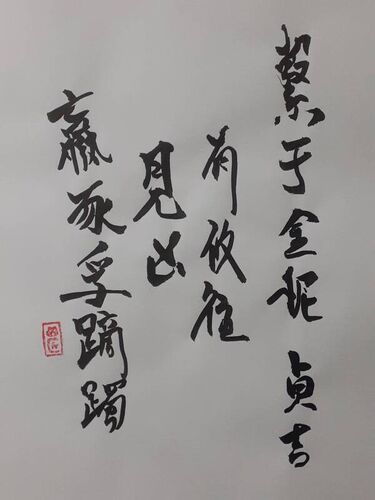 繫于金柅 貞吉
有攸往
見凶
羸豕孚蹢躅